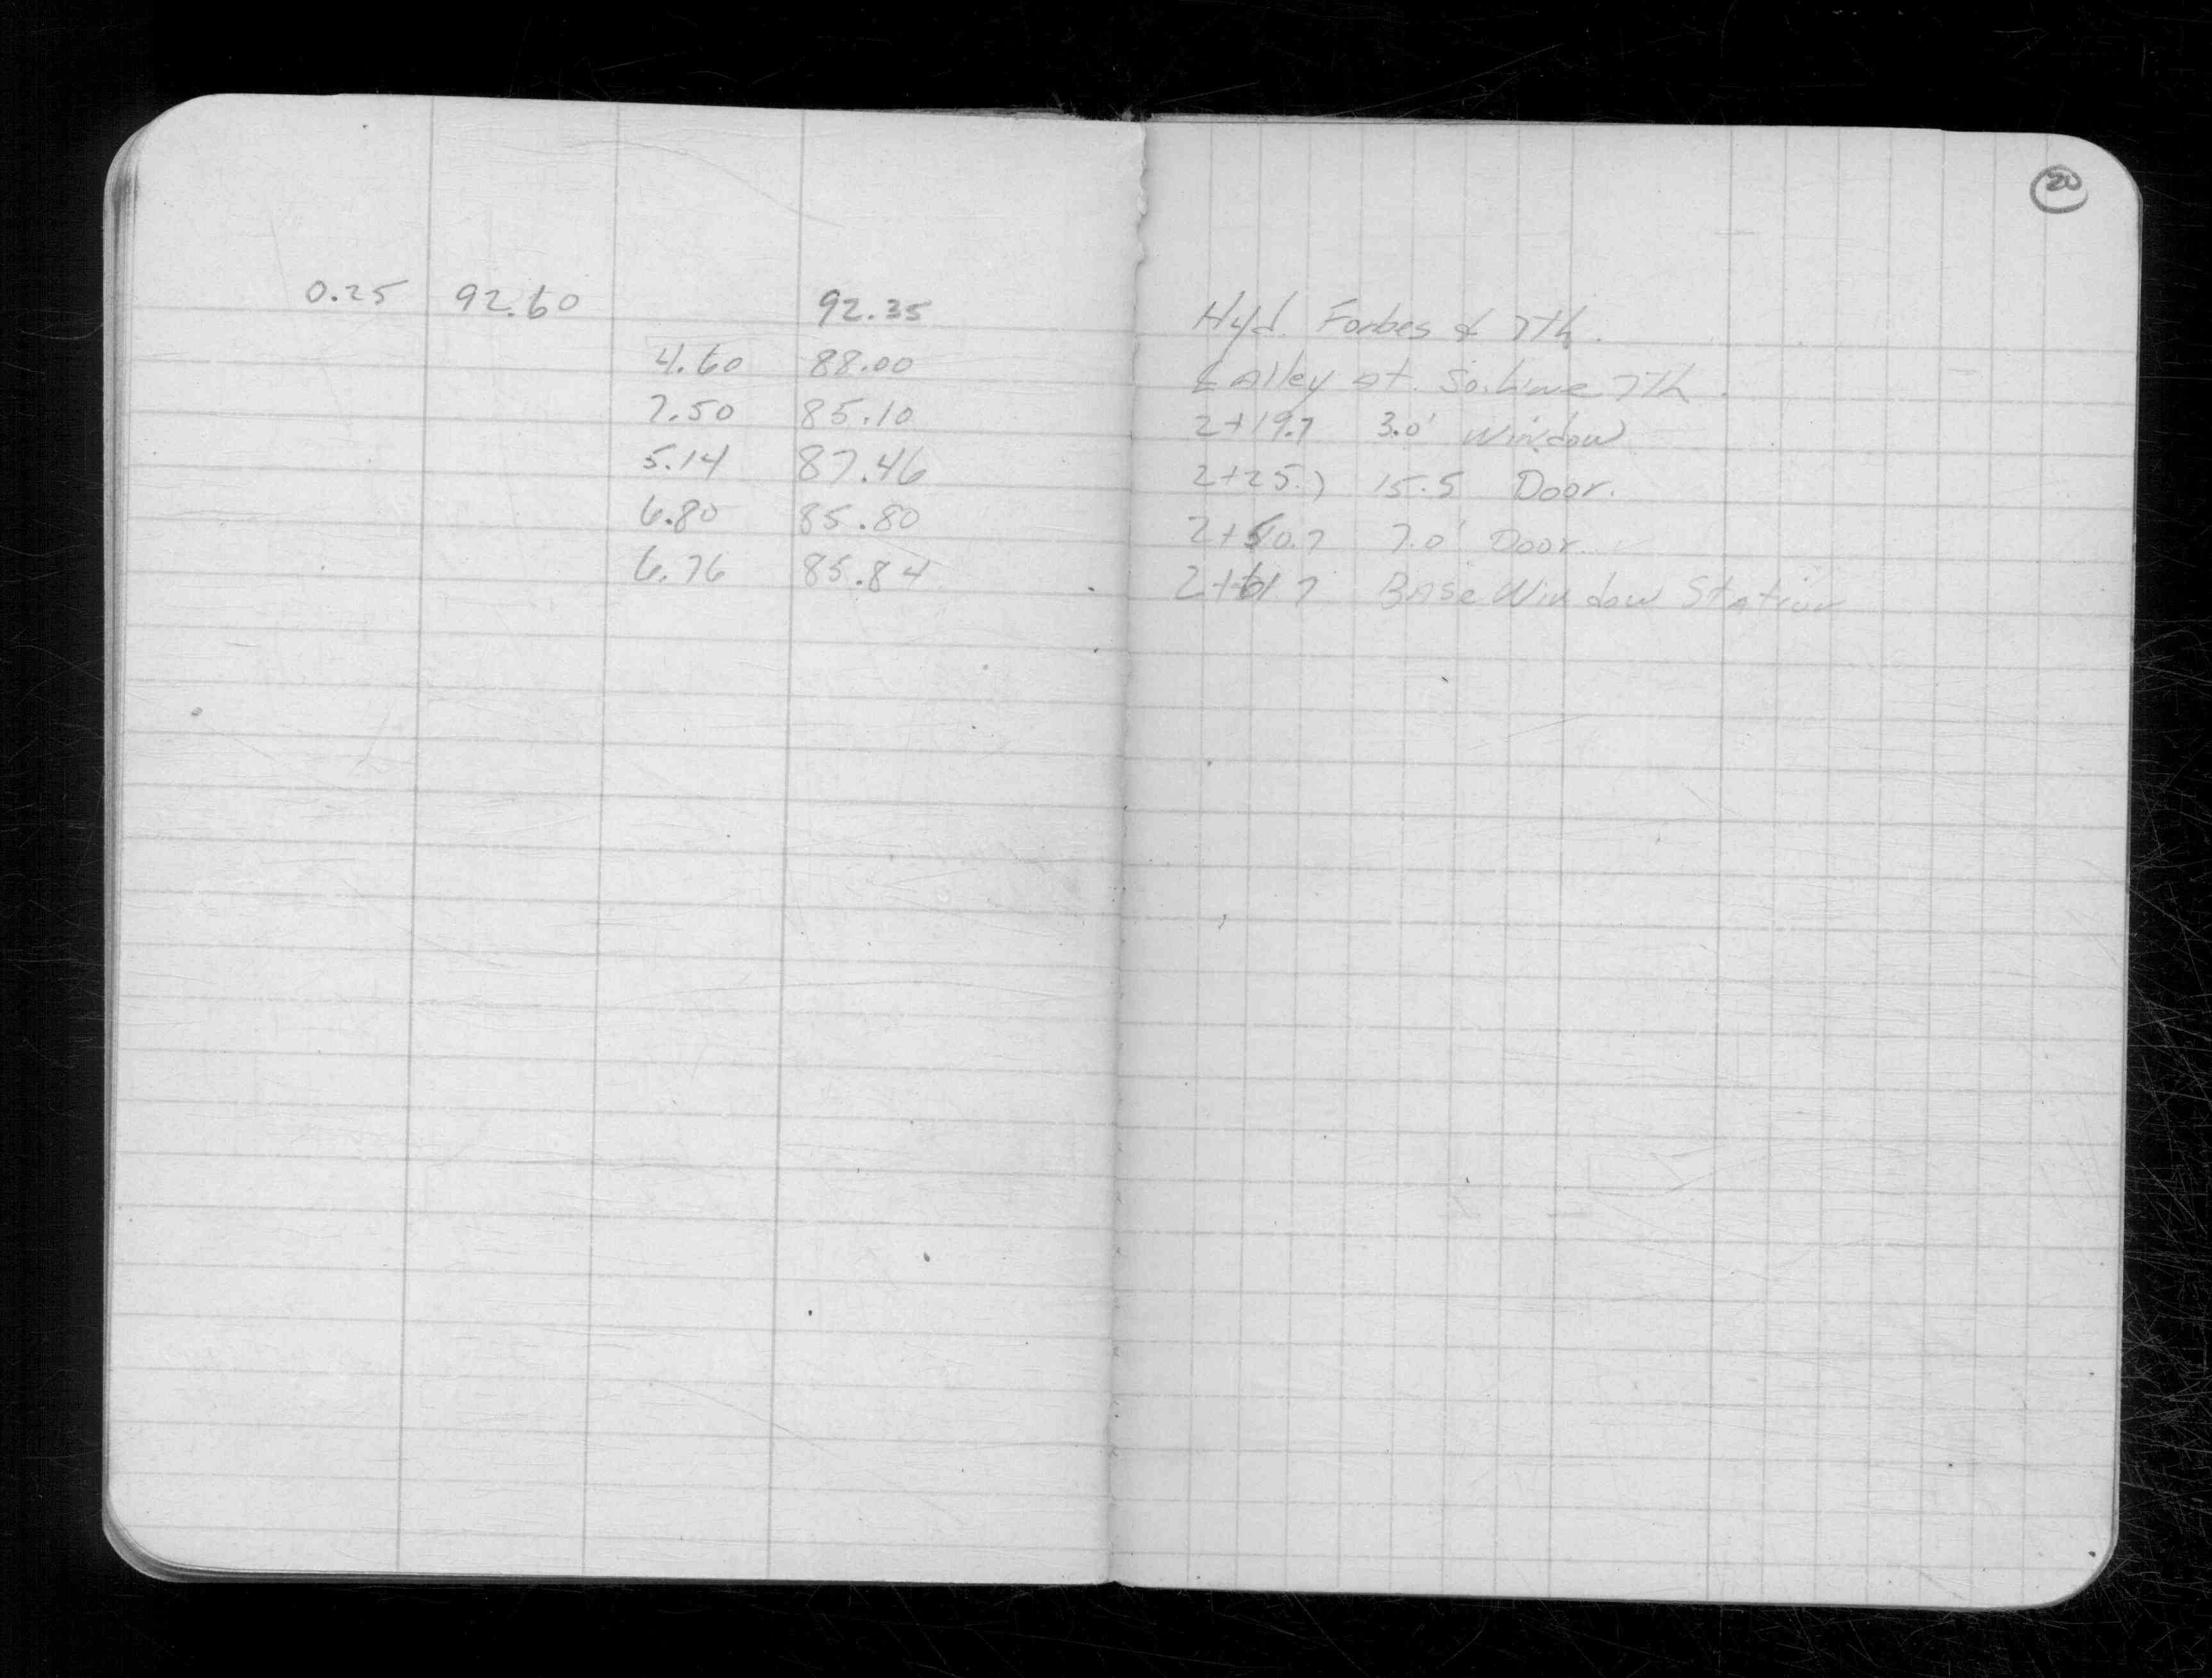 20
0.25 92.60 92.35 Hyd. Forbes & 7th.
4.60 88.00 ℄ Alley at. So. Line 7th.
7.50 85.10 2+19.7 3.0' Window
5.14 87.46 2+25.7 15.5 Door.
6.80 85.80 2+50.7 7.0' Door.
6.76 85.84 2+61.7 Base Window Station